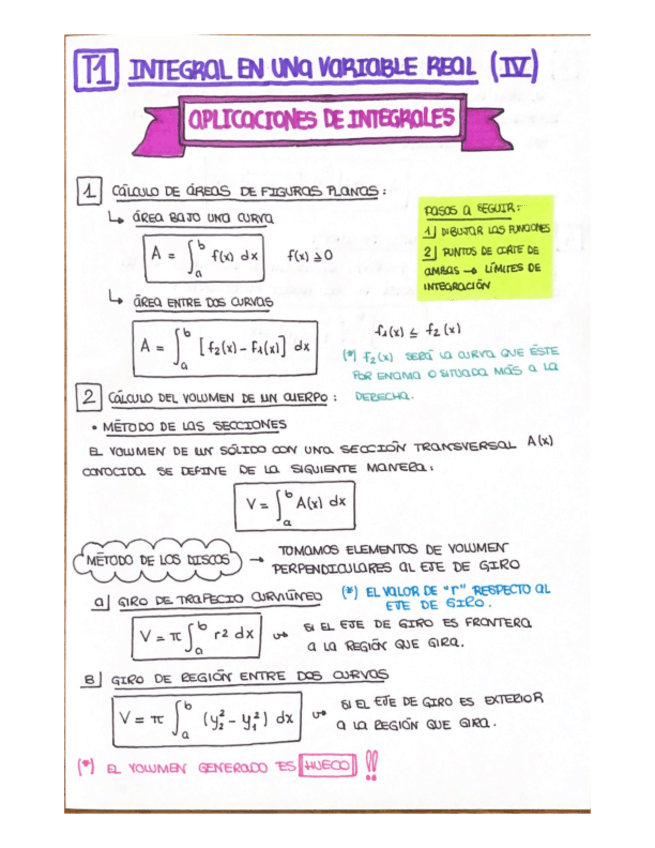 T1 INTEGRAL EN UNA VARIABLE REAL (IV)
APLICACIONES DE INTEGRALES
1 CÁLCULO DE ÁREAS DE FIGURAS PLANAS:
↳ ÁREA BAJO UNA CURVA
A = ∫_a^b f(x) dx f(x) ≥ 0
PASOS A SEGUIR:
1] DIBUJAR LAS FUNCIONES
2] PUNTOS DE CORTE DE
AMBAS → LÍMITES DE
INTEGRACIÓN
↳ ÁREA ENTRE DOS CURVAS
A = ∫_a^b [f₂(x) - f₁(x)] dx
f₁(x) ≤ f₂(x)
(*) f₂(x) SERÁ LA CURVA QUE ÉSTE
POR ENCIMA O SITUADA MÁS A LA
DERECHA.
2 CÁLCULO DEL VOLUMEN DE UN CUERPO:
• MÉTODO DE LAS SECCIONES
EL VOLUMEN DE UN SÓLIDO CON UNA SECCIÓN TRANSVERSAL A(x)
CONOCIDA SE DEFINE DE LA SIGUIENTE MANERA:
V = ∫_a^b A(x) dx
MÉTODO DE LOS DISCOS → TOMAMOS ELEMENTOS DE VOLUMEN
PERPENDICULARES AL EJE DE GIRO
a] GIRO DE TRAPECIO CURVILÍNEO (*) EL VALOR DE "r" RESPECTO AL
EJE DE GIRO.
V = π ∫_a^b r² dx ⇝ SI EL EJE DE GIRO ES FRONTERA
A LA REGIÓN QUE GIRA.
B] GIRO DE REGIÓN ENTRE DOS CURVAS
V = π ∫_a^b (y₂² - y₁²) dx ⇝ SI EL EJE DE GIRO ES EXTERIOR
A LA REGIÓN QUE GIRA.
(*) EL VOLUMEN GENERADO ES HUECO !!